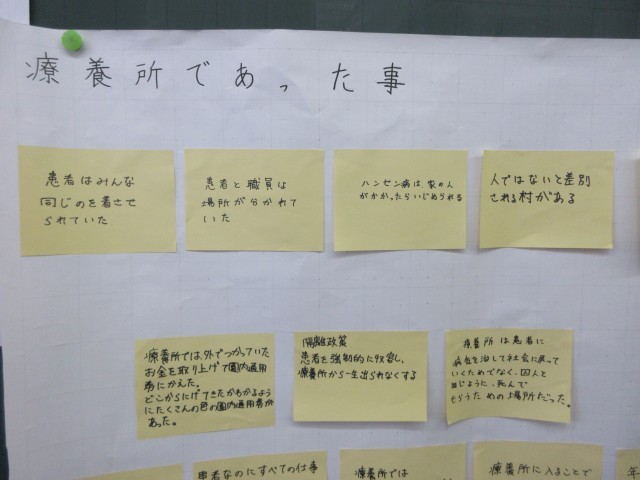 療養所であった事
患者はみんな
同じのを着させ
られていた
患者と職員は
場所が分かれて
いた
ハンセン病は、家の人
がかかったらいじめられる
人ではないと差別
される村がある
療養所では、外でつかっていた
お金を取り上げて園内通用
券にかえた。
どこからにげてきたかわかるよう
にたくさんの色の園内通用券が
あった。
隔離政策
患者を強制的に収容し、
療養所から一生出られなくする
療養所は患者に
病気を治して社会に戻って
いくためでなく、囚人と
同じように、死んで
もらうための場所だった。
患者なのにすべての仕事
療養所では
療養所に入ることで